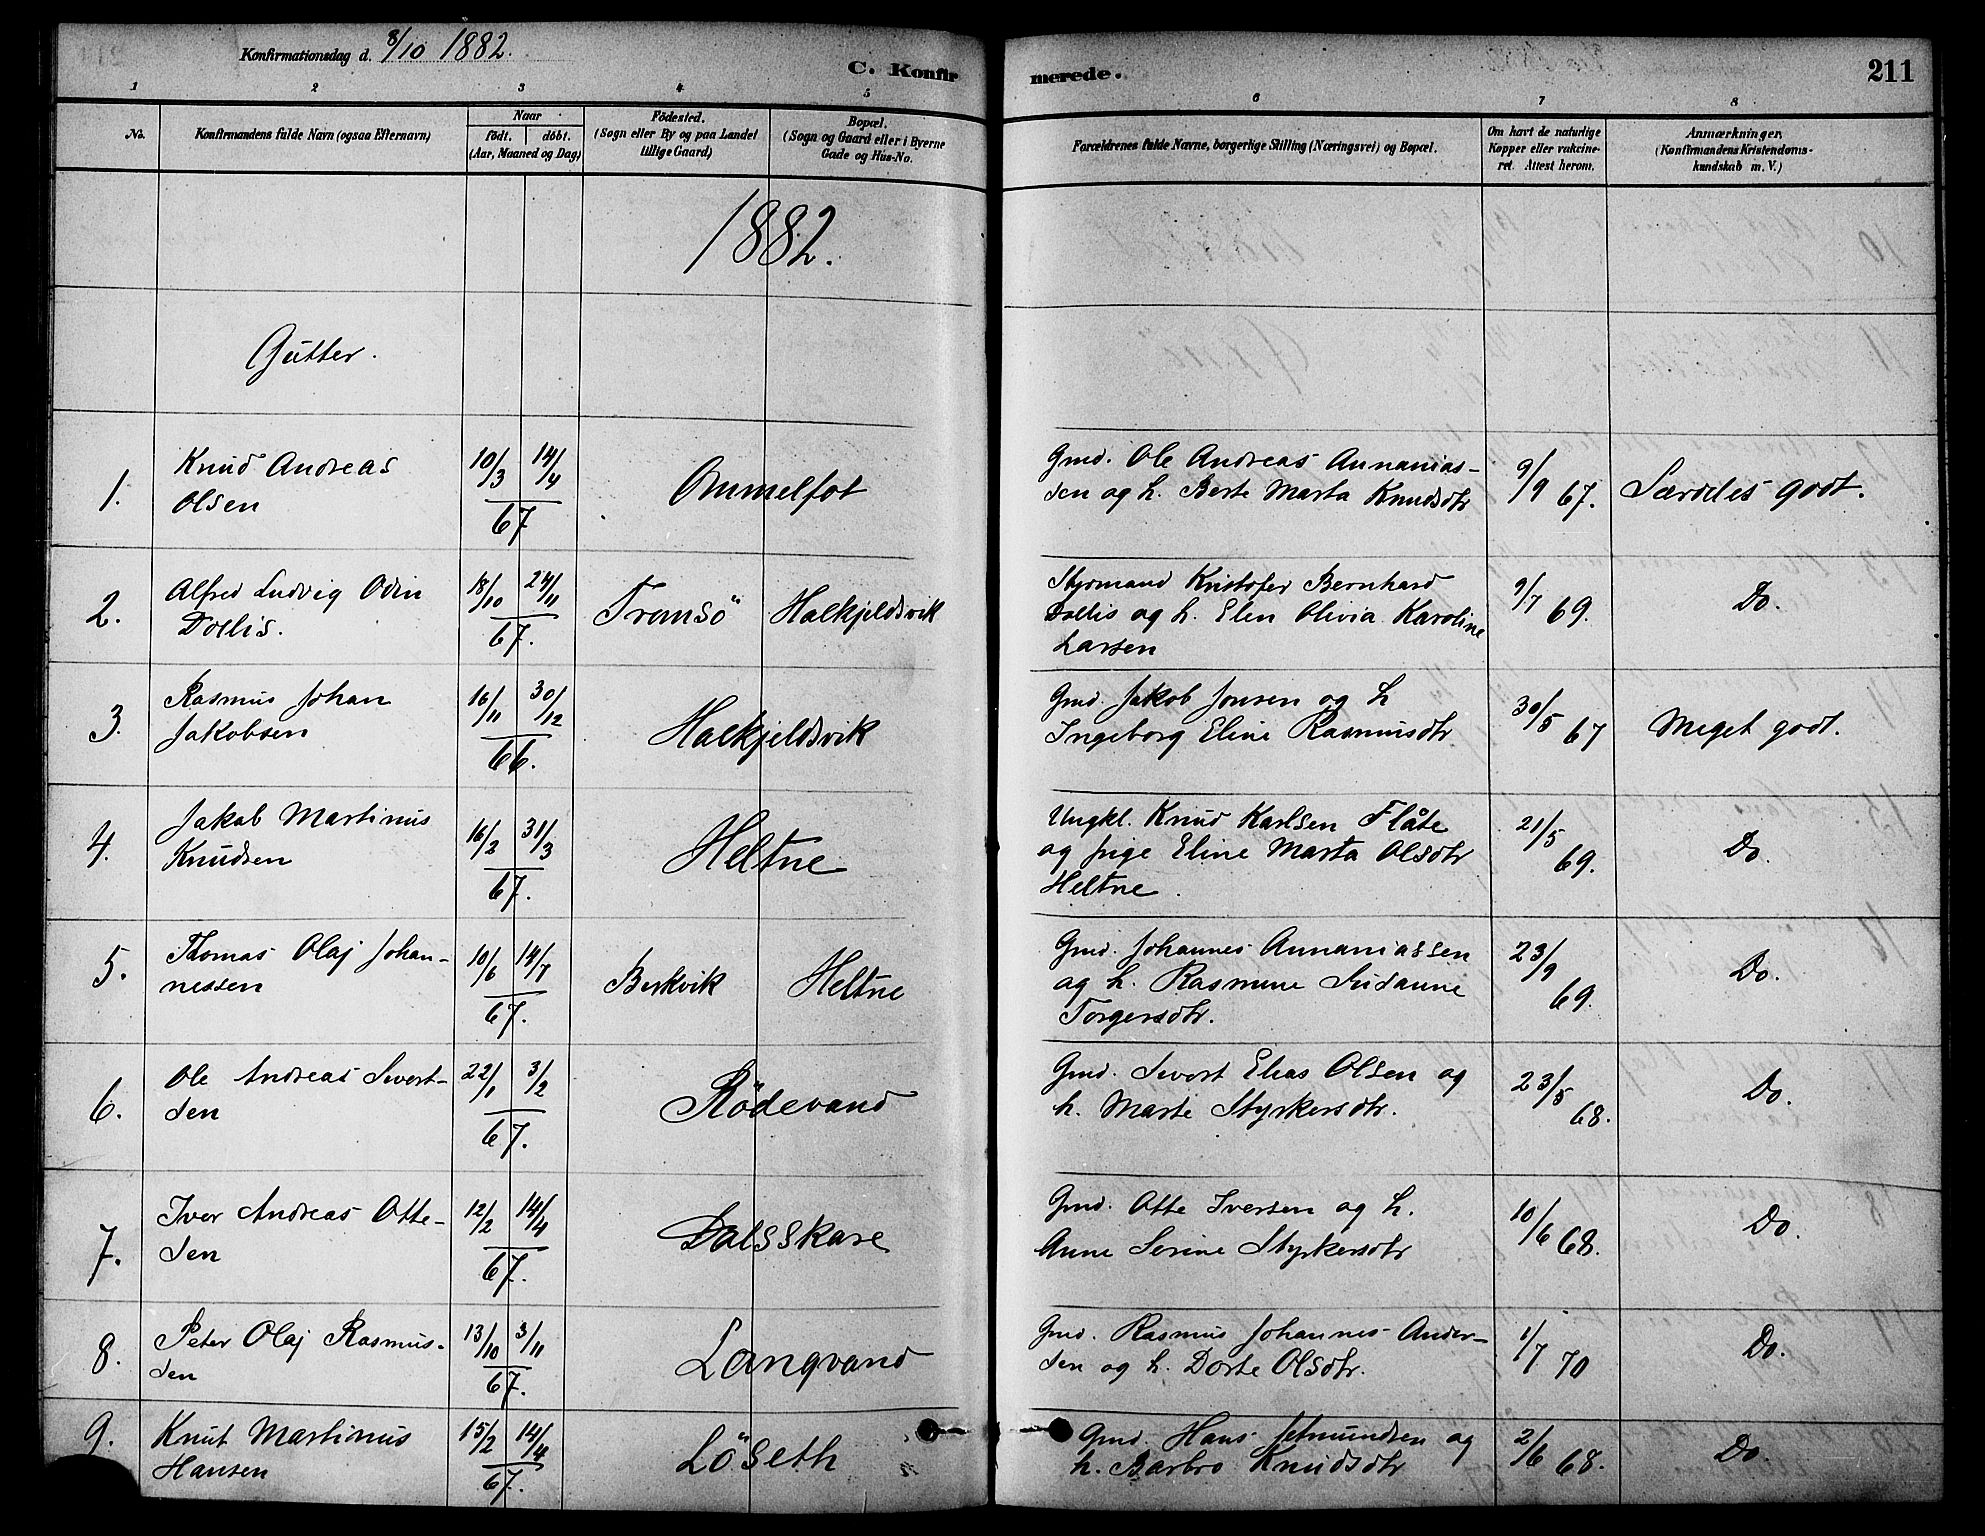 Konfirmationsdag d. 8/10 1882.
C. Konfir
merede.
211
1 2 3 4 5 6 7 8
No.
Konfirmandens fulde Navn (ogsaa Efternavn)
Naar
født. døbt.
(Aar, Maaned og Dag)
Fødested.
(Sogn eller By og paa Landet
tillige Gaard)
Bopæl.
(Sogn og Gaard eller i Byerne
Gade og Hus-No.
Forældrenes fulde Navne, borgerlige Stilling (Næringsvei) og Bopæl.
Om havt de naturlige
Kopper eller vakcine-
ret. Attest herom.
Anmærkninger,
(Konfirmandens Kristendoms-
kundskab m. V.)
1882.
Gutter.
1.
Knud Andreas
Olsen
10/3 14/4
67
Ommelfot
Gmd. Ole Andreas Annanias-
sen og h. Berte Marta Knudsdtr
9/9 67.
Særdeles godt.
2.
Alfred Ludvig Odin
Dollis.
18/10 24/11
67.
Tromsö
Halkjeldsvik
Styrmand Kristofer Bernhard
Dollis og h. Elen Olivia Karoline
Larsen
9/7 69.
Do.
3.
Rasmus Johan
Jakobsen
16/11 30/12
66.
Halkjeldsvik
Gmd. Jakob Jonsen og h
Ingeborg Eline Rasmusdtr
30/5 67
Meget godt.
4.
Jakob Martinus
Knudsen
16/2 31/3
67.
Heltne
Ungkl. Knud Karlsen Flåte
og pige Eline Marta Olsdtr
Heltne.
21/5 69.
Do.
5.
Thomas Olaj Johan-
nessen
10/6 14/7
67.
Berkvik
Heltne
Gmd. Johannes Annaniassen
og h. Rasmine Susanne
Torgersdtr.
23/9 69.
Do.
6.
Ole Andreas Sivert-
sen
22/1 3/2
67.
Rödevand
Gmd. Sivert Elias Olsen og
h. Marte Styrkersdtr.
23/5 68.
Do.
7.
Iver Andreas Otte-
sen
12/2 14/4
67.
Dalsskare
Gmd. Otte Iversen og h.
Anne Serine Styrkersdtr
10/6 68.
Do.
8.
Peter Olaj Rasmus-
sen
13/10 3/11
67.
Langvand
Gmd. Rasmus Johannes Ander-
sen og h. Dorte Olsdtr.
1/7 70
Do.
9.
Knut Martinus
Hansen
15/2 14/4
67.
Löseth
Gmd. Hans Jetmundsen og
h. Barbro Knudsdtr
2/6 68.
Do.